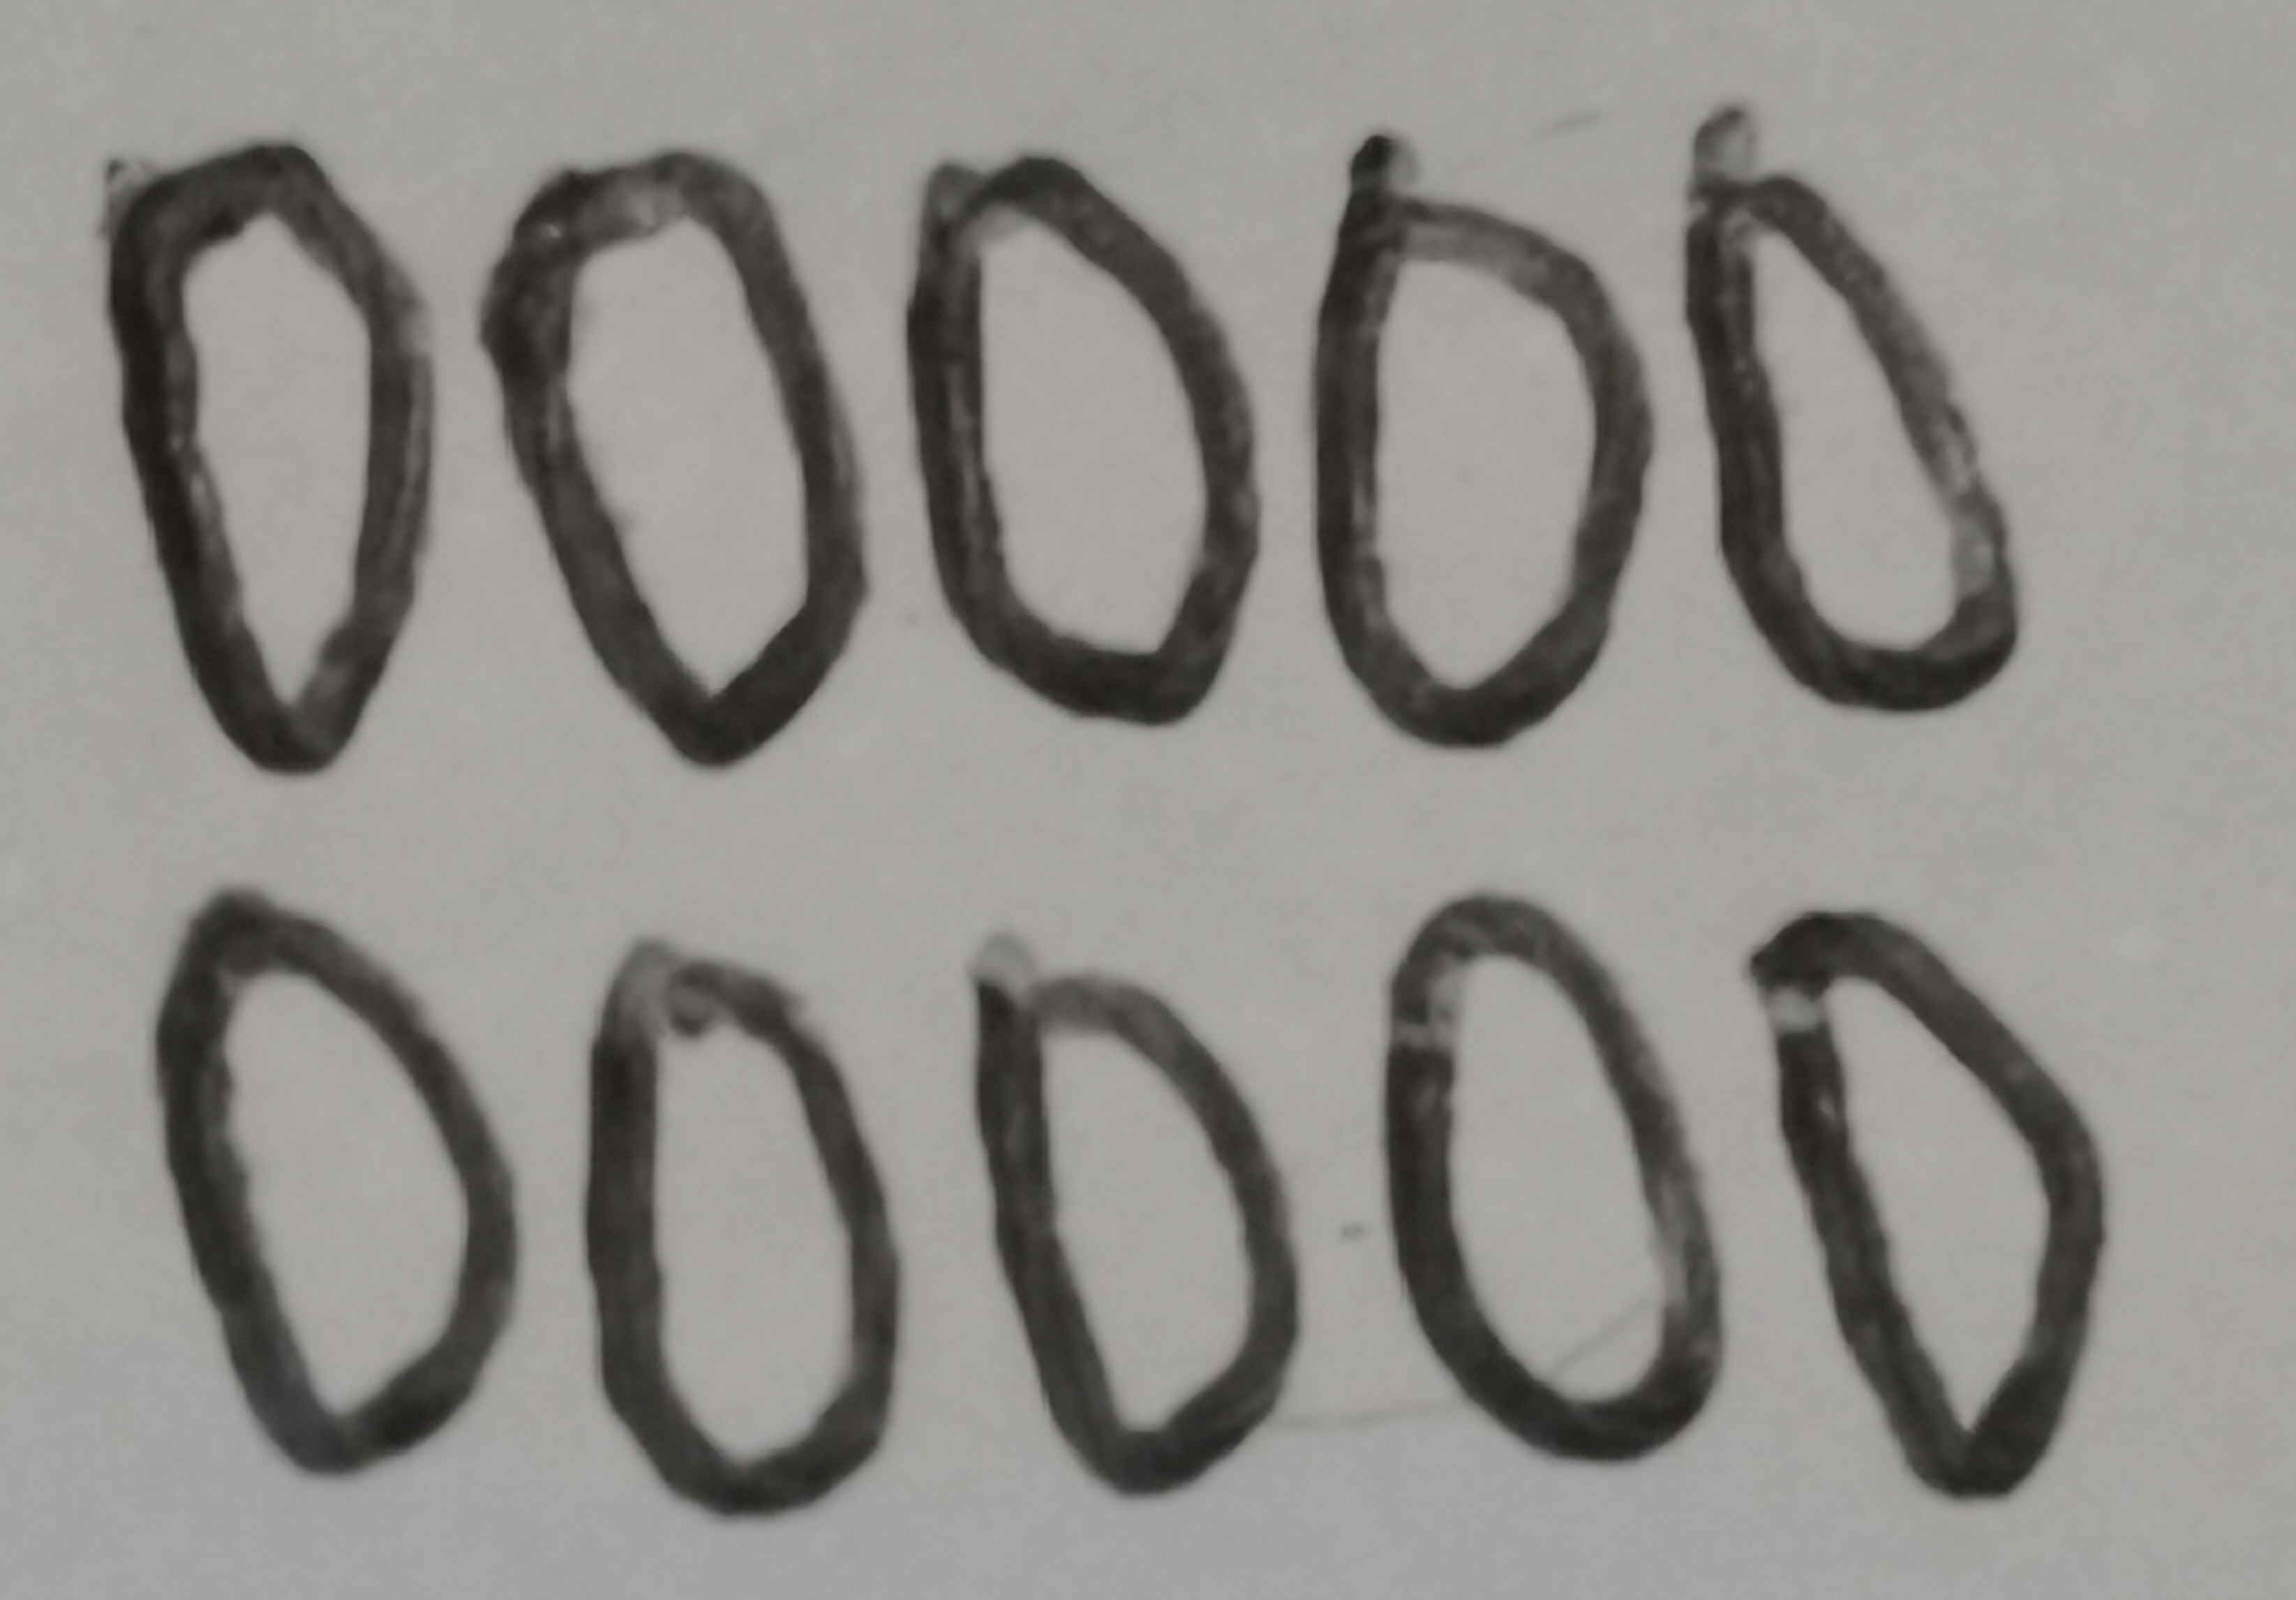 00000
00000